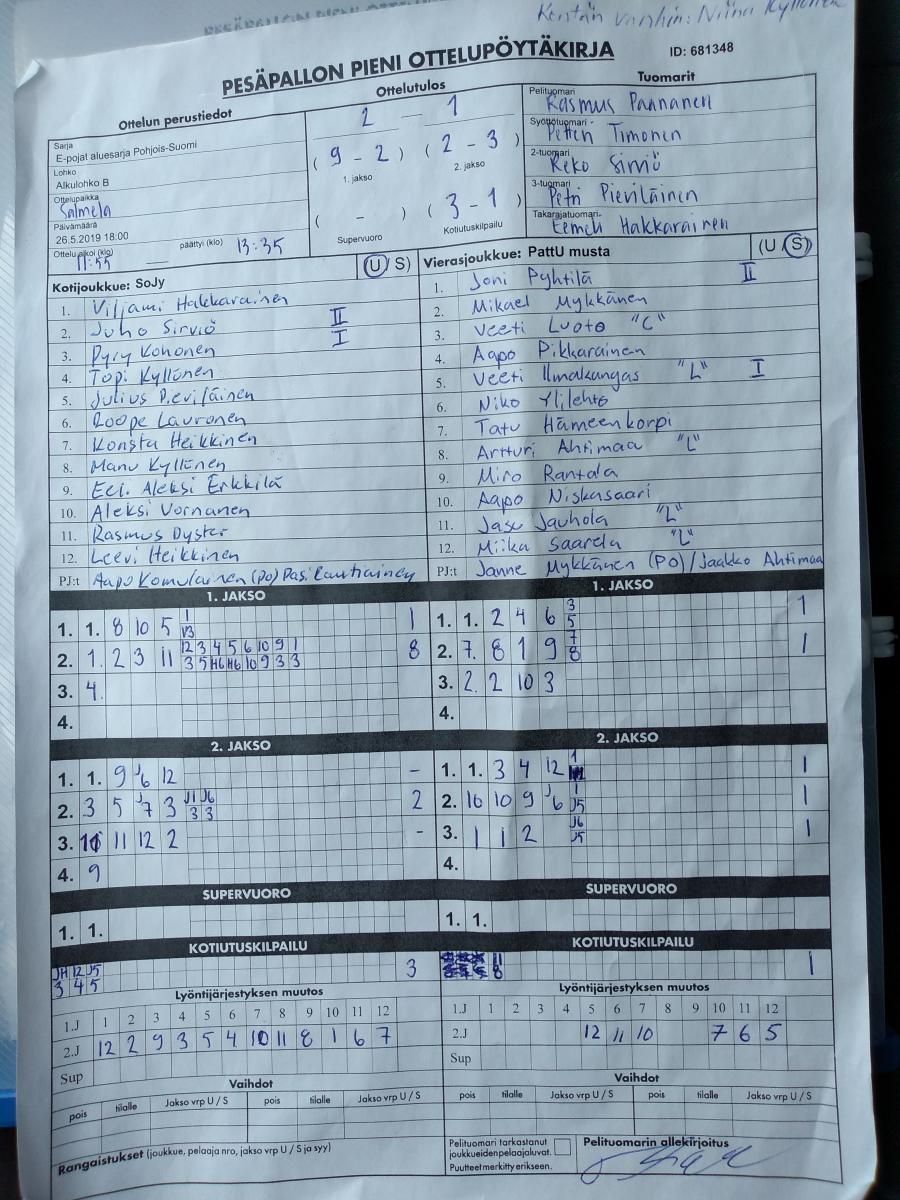 Kentän vanhin: Niina Kyllönen
PESÄPALLON PIENI OTTELUPÖYTÄKIRJA
ID: 681348
Ottelun perustiedot
Sarja
E-pojat aluesarja Pohjois-Suomi
Lohko
Alkulohko B
Ottelupaikka
Salmela
Päivämäärä
26.5.2019 18:00
Ottelu alkoi (klo) 11:55 päättyi (klo) 13:35
Ottelutulos
2 — 1
( 9 - 2 ) ( 2 - 3 )
1. jakso 2. jakso
( - ) ( 3 - 1 )
Supervuoro Kotiutuskilpailu
Tuomarit
Pelituomari
Rasmus Pannanen
Syöttötuomari
Petteri Timonen
2-tuomari
Keko Sirviö
3-tuomari
Petri Pieviläinen
Takarajatuomari
Eemeli Hakkarainen
Kotijoukkue: SoJy (U / S)
1. Viljami Hakkarainen
2. Juho Sirviö II
3. Pyry Kohonen I
4. Topi Kyllönen
5. Julius Pieviläinen
6. Roope Lauronen
7. Konsta Heikkinen
8. Manu Kyllönen
9. Eeli Aleksi Erkkilä
10. Aleksi Vornanen
11. Rasmus Dyster
12. Leevi Heikkinen
PJ:t Aapo Komulainen (PO) Pasi Rautiainen
Vierasjoukkue: PattU musta (U / S)
1. Joni Pyhtilä II
2. Mikael Mykkänen
3. Veeti Luoto "C"
4. Aapo Pikkarainen
5. Veeti Ilmakangas "L" I
6. Niko Ylilehto
7. Tatu Hämeenkorpi
8. Artturi Ahtimaa "L"
9. Miro Rantala
10. Aapo Niskasaari
11. Jasu Jauhola "L"
12. Miika Saarela "L"
PJ:t Janne Mykkänen (PO) / Jaakko Ahtimaa
1. JAKSO
1. 1. 8 10 5 1 V3 1
2. 1. 2 3 11 12 3 4 5 6 10 9 1 8
3 5 H6 H6 10 9 3 3
3. 4.
4.
1. JAKSO
1. 1. 2 4 6 3 5 1
2. 7. 8 1 9 7 8 1
3. 2. 2 10 3
4.
2. JAKSO
1. 1. 9 J6 12 -
2. 3 5 J7 3 J1 J6 2
3 3
3. 10 11 12 2 -
4. 9
2. JAKSO
1. 1. 3 4 12 1 1
2. 10 10 9 J6 1 J5 1
3. 1 1 2 J6 J5 1
4.
SUPERVUORO
1. 1.
SUPERVUORO
1. 1.
KOTIUTUSKILPAILU
J11 12 J5 3
3 4 5
KOTIUTUSKILPAILU
11 8 1
Lyöntijärjestyksen muutos
1.J 1 2 3 4 5 6 7 8 9 10 11 12
2.J 12 2 9 3 5 4 10 11 8 1 6 7
Sup
Lyöntijärjestyksen muutos
1.J 1 2 3 4 5 6 7 8 9 10 11 12
2.J 12 11 10 7 6 5
Sup
Vaihdot
pois tilalle Jakso vrp U / S pois tilalle Jakso vrp U / S
Vaihdot
pois tilalle Jakso vrp U / S pois tilalle Jakso vrp U / S
Rangaistukset (joukkue, pelaaja nro, jakso vrp U / S ja syy)
Pelituomari tarkastanut
joukkueiden pelaajaluvat.
Puutteet merkitty erikseen.
Pelituomarin allekirjoitus